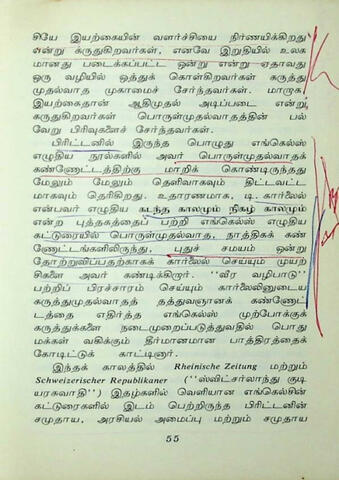 சியே இயற்கையின் வளர்ச்சியை நிர்ணயிக்கிறது
என்று கருதுகிறவர்கள், எனவே இறுதியில் உலக
மானது படைக்கப்பட்ட ஒன்று என்று ஏதாவது
ஒரு வழியில் ஒத்துக் கொள்கிறவர்கள் கருத்து
முதல்வாத முகாமைச் சேர்ந்தவர்கள். மாறாக
இயற்கைதான் ஆதிமுதல் அடிப்படை என்று
கருதுகிறவர்கள் பொருள்முதல்வாதத்தின் பல்
வேறு பிரிவுகளைச் சேர்ந்தவர்கள்.
பிரிட்டனில் இருந்த பொழுது எங்கெல்ஸ்
எழுதிய நூல்களில் அவர் பொருள்முதல்வாதக்
கண்ணோட்டத்திற்கு மாறிக் கொண்டிருந்தது
மேலும் மேலும் தெளிவாகவும் திட்டவட்ட
மாகவும் தெரிகிறது. உதாரணமாக, டி. கார்லைல்
என்பவர் எழுதிய கடந்த காலமும் நிகழ் காலமும்
என்ற புத்தகத்தைப் பற்றி எங்கெல்ஸ் எழுதிய
கட்டுரையில் பொருள்முதல்வாத, நாத்திகக் கண்
ணோட்டங்களிலிருந்து, புதுச் சமயம் ஒன்று
தோற்றுவிப்பதற்காகக் கார்லைல் செய்யும் முயற்
சிகளை அவர் கண்டிக்கிறார். "வீர வழிபாடு"
பற்றிப் பிரச்சாரம் செய்யும் கார்லைலினுடைய
கருத்துமுதல்வாதத் தத்துவஞானக் கண்ணோட்
டத்தை எதிர்த்த எங்கெல்ஸ் முற்போக்குக்
கருத்துக்களை நடைமுறைப்படுத்துவதில் பொது
மக்கள் வகிக்கும் தீர்மானமான பாத்திரத்தைக்
கோடிட்டுக் காட்டினார்.
இந்தக் காலத்தில் Rheinische Zeitung மற்றும்
Schweizerischer Republikaner ("ஸ்விட்சர்லாந்து குடி
யரசுவாதி") இதழ்களில் வெளியான எங்கெல்சின்
கட்டுரைகளில் இடம் பெற்றிருந்த பிரிட்டனின்
சமுதாய, அரசியல் அமைப்பு மற்றும் சமுதாய
55